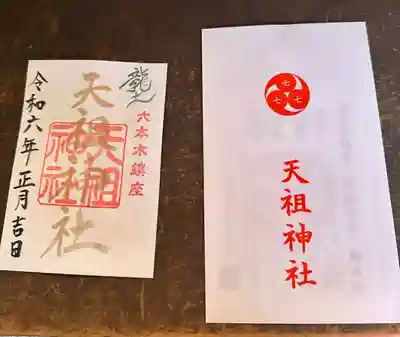 龍
六本木鎮座
天祖神社
天祖
神社
令和六年正月吉日
七
七
七
天祖神社